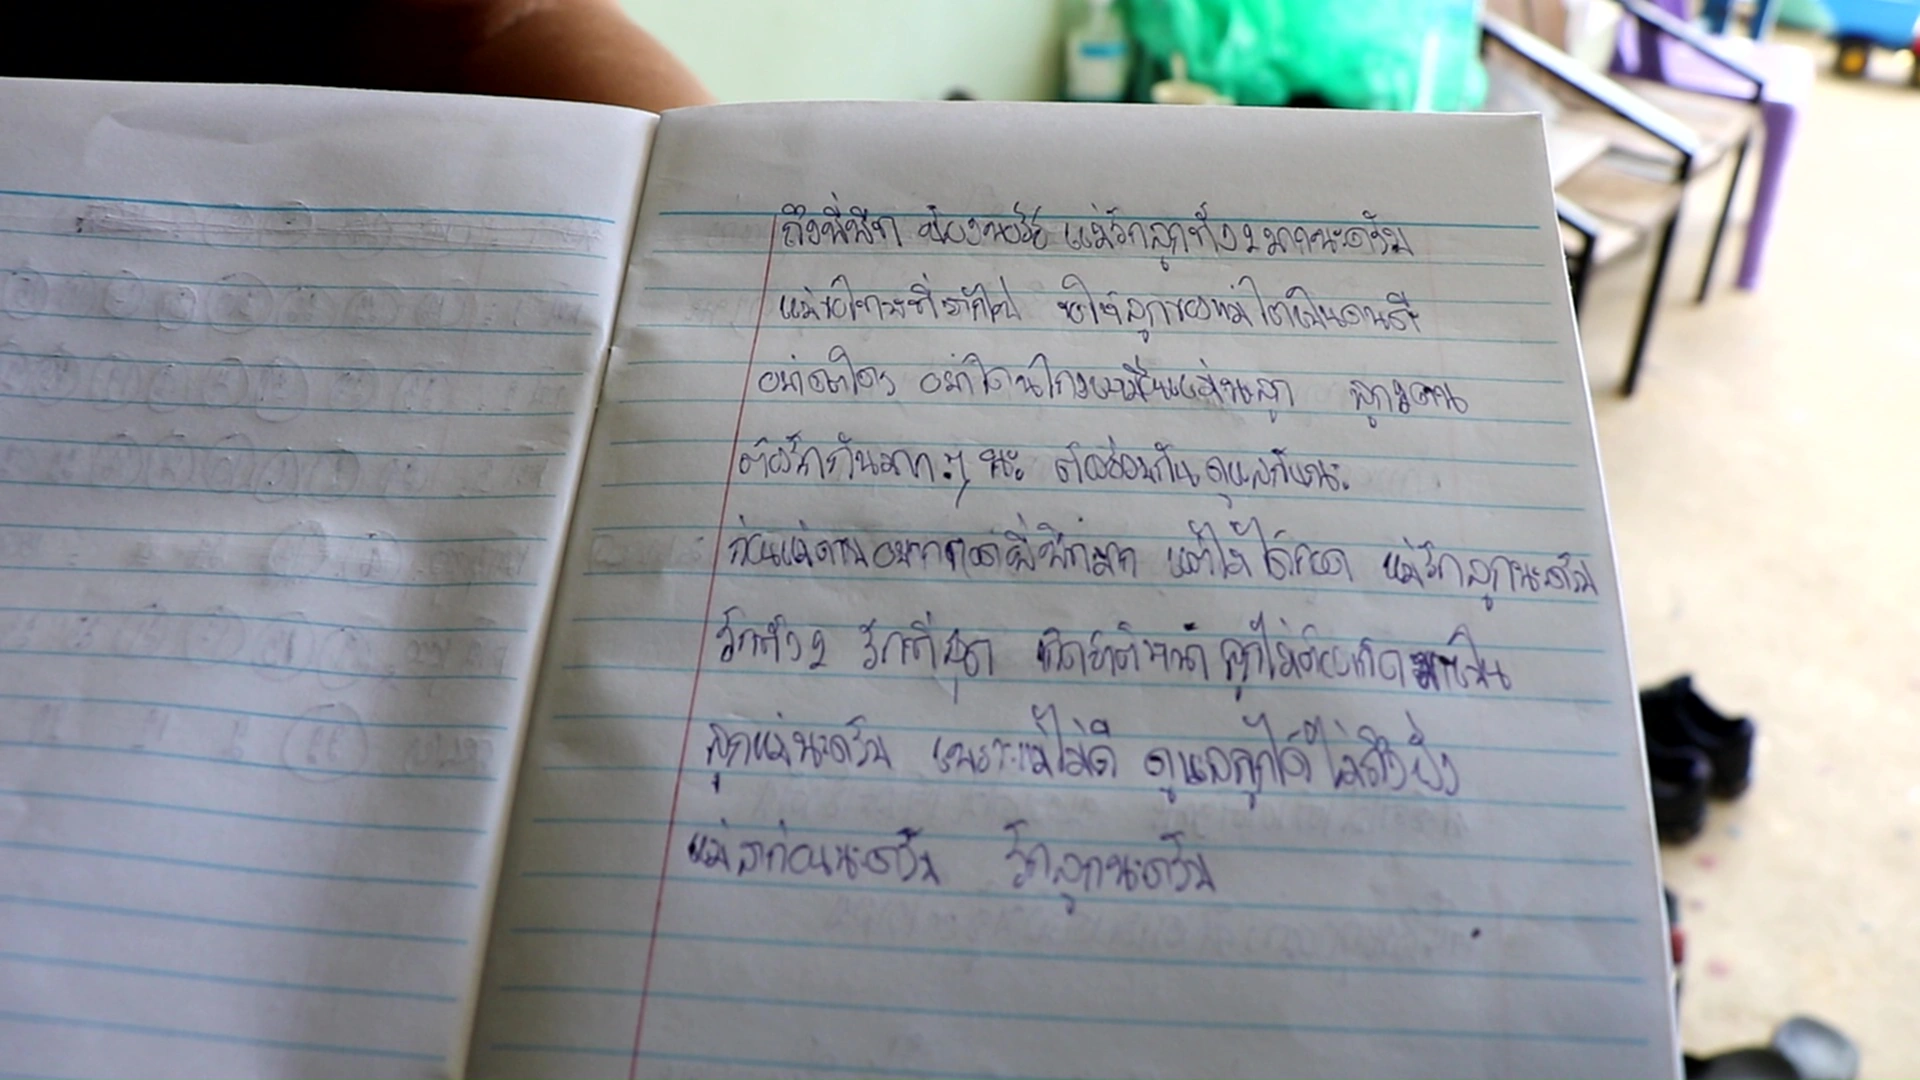 ถึงพี่พีท น้อง แม่รักลูกทั้ง 2 มากนะครับ
แม่ขอโทษที่ทำไป ขอให้ลูกของแม่โตเป็นคนดี
อย่าโดนโกงเหมือนแม่นะลูก ลูก 2 คน
ต้องรักกันมาก ๆ นะ ต้องช่วยกันดูแลกันนะ
ก่อนแม่ อยากกอดพี่พีทมาก แต่ไม่ได้กอด แม่รักลูกนะครับ
รักทั้ง 2 รักที่สุด เกิดชาติหน้า ลูกไม่ต้องเกิดมาเป็น
ลูกแม่นะครับ เพราะแม่ไม่ดี ดูแลลูกได้ไม่ดี
แม่ลาก่อนนะครับ รักลูกนะครับ